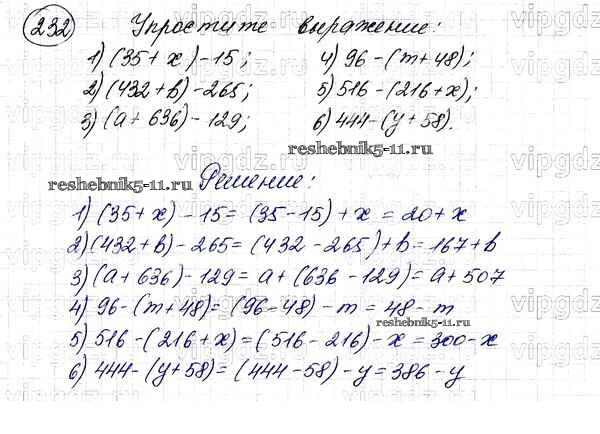 232 Упростите выражение:
1) (35 + x) - 15; 4) 96 - (m + 48);
2) (432 + b) - 265; 5) 516 - (216 + x);
3) (a + 636) - 129; 6) 444 - (y + 58).
reshebnik5-11.ru
reshebnik5-11.ru Решение:
1) (35 + x) - 15 = (35 - 15) + x = 20 + x
2) (432 + b) - 265 = (432 - 265) + b = 167 + b
3) (a + 636) - 129 = a + (636 - 129) = a + 507
4) 96 - (m + 48) = (96 - 48) - m = 48 - m
reshebnik5-11.ru
5) 516 - (216 + x) = (516 - 216) - x = 300 - x
6) 444 - (y + 58) = (444 - 58) - y = 386 - y